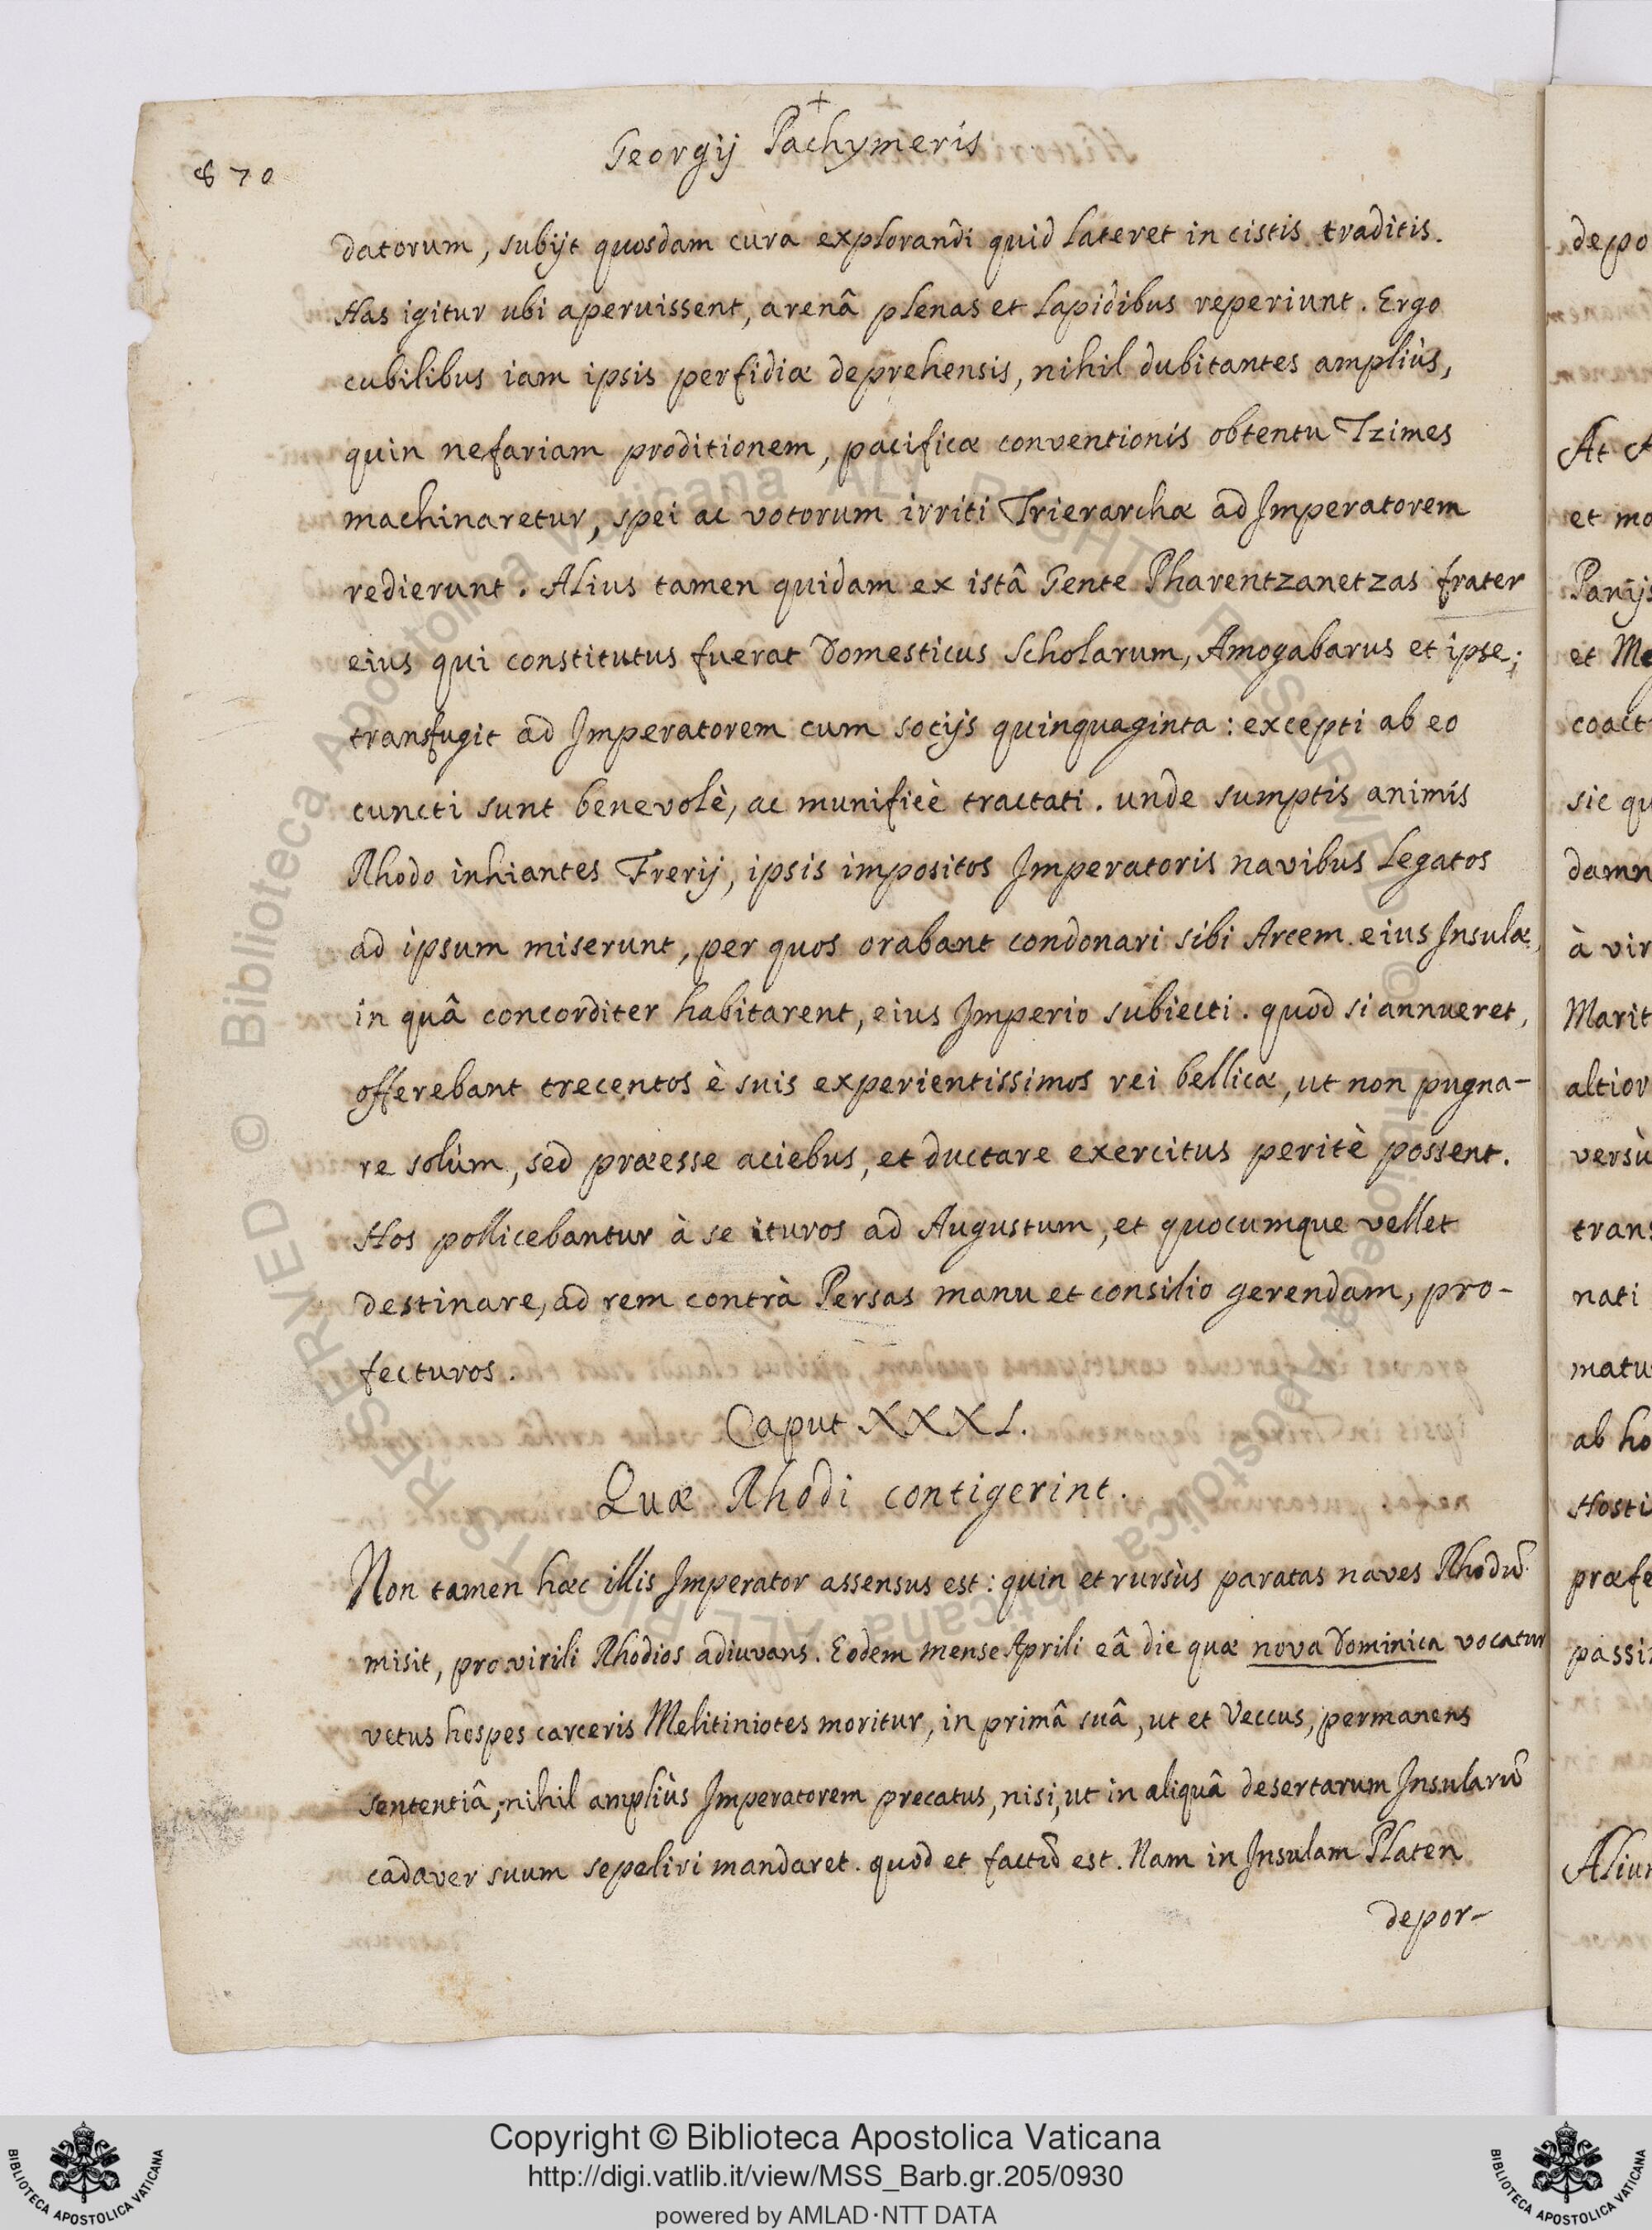 +
Georgij Pachymeris
870
datorum, subijt quosdam cura explorandi quid lateret in cistis traditis.
Has igitur ubi aperuissent, arenâ plenas et lapidibus reperiunt. Ergo
cubilibus iam ipsis perfidiæ deprehensis, nihil dubitantes ampliùs,
quin nefariam proditionem, pacificæ conventionis obtentu Tzimes
machinaretur, spei ac votorum irriti Trierarchæ ad Imperatorem
redierunt. Alius tamen quidam ex istâ Gente Pharentzanetzas frater
eius qui constitutus fuerat Domesticus Scholarum, Amogabarus et ipse;
transfugit ad Imperatorem cum socijs quinquaginta: excepti ab eo
cuncti sunt benevolè, ac munificè tractati. unde sumptis animis
Rhodo inhiantes Frerij, ipsis impositos Imperatoris navibus Legatos
ad ipsum miserunt, per quos orabant condonari sibi Arcem eius Insulæ,
in quâ concorditer habitarent, eius Imperio subiecti. quod si annueret,
offerebant trecentos è suis experientissimos rei bellicæ, ut non pugna-
re solùm, sed præesse aciebus, et ductare exercitus peritè possent.
Hos pollicebantur à se ituros ad Augustum, et quocumque vellet
destinare, ad rem contrà Persas manu et consilio gerendam, pro-
fecturos.
Caput XXXI.
Quæ Rhodi contigerint.
Non tamen hæc illis Imperator assensus est: quin et rursùs paratas naves Rhodũ
misit, pro virili Rhodios adiuvans. Eodem mense Aprili eâ die quæ nova Dominica vocatur
vetus hospes carceris Melitiniotes moritur, in primâ suâ, ut et Veccus, permanens
sententiâ, nihil ampliùs Imperatorem precatus, nisi, ut in aliquâ desertarum Insularũ
cadaver suum sepeliri mandaret. quod et factũ est. Nam in Insulam Platen
depor-
depo
At
et mo
Parijs
et Me
coact
sic qu
damn
à vir
Marit
altior
versù
trans
nati
matu
ab ho
Hosti
præfe
passi
Aliu
Copyright © Biblioteca Apostolica Vaticana
http://digi.vatlib.it/view/MSS_Barb.gr.205/0930
powered by AMLAD·NTT DATA
BIBLIOTECA APOSTOLICA VATICANA
BIBLIOTECA APOSTOLICA VATICANA
© Biblioteca Apostolica Vaticana ALL RIGHTS RESERVED © Biblioteca Apostolica Vaticana ALL RIGHTS RESERVED